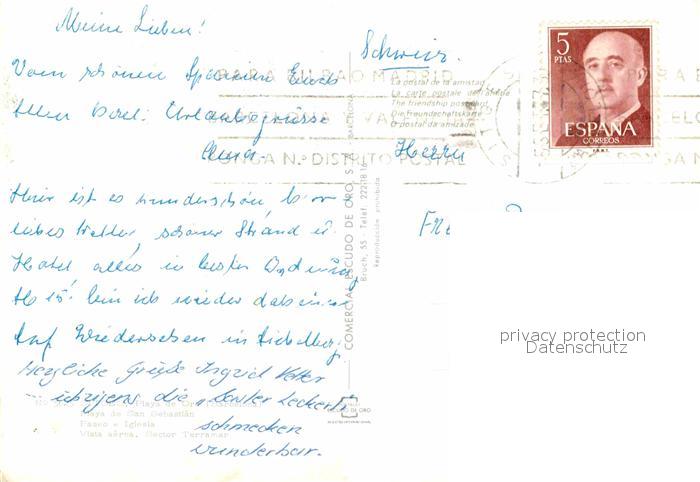 Meine Lieben!
Vom schönen Spanien Euch
allen viel: Urlaubsgrüsse
Oma.
Hier ist es wunderschön
Wetter, schöner Strand u.
Hotel, alles in bester Ordnung
bin ich wieder daheim
Auf Wiedersehen in
Herzliche Grüße Ingrid
übrigens die Leckerli
schmecken
wunderbar.
Playa de San Sebastián
Paseo e Iglesia
Vista aérea. Sector Terramar
COMERCIAL ESCUDO DE ORO, S. A. BARCELONA
Bruch, 55 - Telef.
Reproducción prohibida
ESCUDO DE ORO
Schweiz.
PARA BILBAO MADRID
La postal de la amistad
La carte postale de l'amitié
The friendship postcard
Die Freundschaftskarte
O postal da amizade
PONGA N.º DISTRITO POSTAL
Herrn
5
PTAS
ESPAÑA
CORREOS
privacy protection
Datenschutz